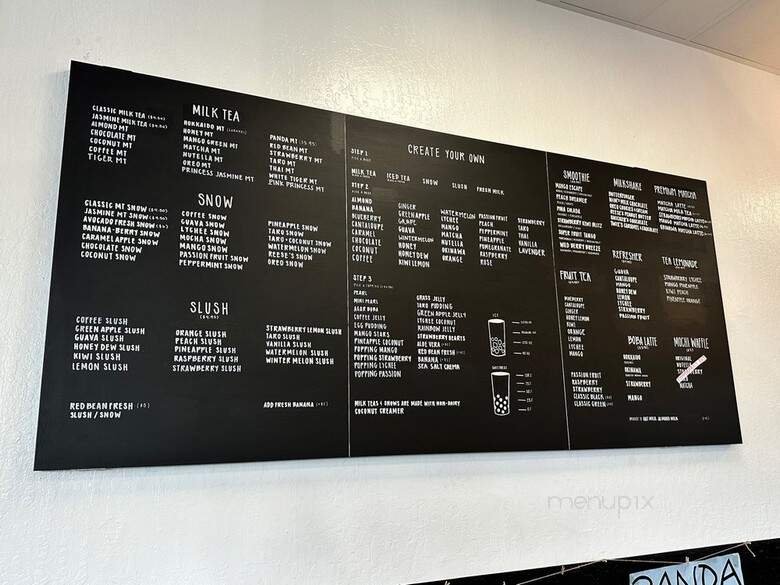 MILK TEA
CLASSIC MILK TEA
JASMINE MILK TEA
ALMOND MT
CHOCOLATE MT
COCONUT MT
COFFEE MT
TIGER MT
HOKKAIDO MT
HONEY MT
MANGO GREEN MT
MATCHA MT
NUTELLA MT
OREO MT
PRINCESS JASMINE MT
PANDA MT
RED BEAN MT
STRAWBERRY MT
TARO MT
THAI MT
WHITE TIGER MT
PINK PRINCESS MT
SNOW
CLASSIC MT SNOW
JASMINE MT SNOW
AVOCADO FRESH SNOW
BANANA-BERRY SNOW
CARAMEL APPLE SNOW
CHOCOLATE SNOW
COCONUT SNOW
COFFEE SNOW
GUAVA SNOW
LYCHEE SNOW
MOCHA SNOW
MANGO SNOW
PASSION FRUIT SNOW
PEPPERMINT SNOW
PINEAPPLE SNOW
TARO SNOW
TARO-COCONUT SNOW
WATERMELON SNOW
REESE'S SNOW
OREO SNOW
SLUSH
COFFEE SLUSH
GREEN APPLE SLUSH
GUAVA SLUSH
HONEY DEW SLUSH
KIWI SLUSH
LEMON SLUSH
ORANGE SLUSH
PEACH SLUSH
PINEAPPLE SLUSH
RASPBERRY SLUSH
STRAWBERRY SLUSH
STRAWBERRY LEMON SLUSH
TARO SLUSH
VANILLA SLUSH
WATERMELON SLUSH
WINTER MELON SLUSH
RED BEAN FRESH
SLUSH / SNOW
ADD FRESH BANANA
CREATE YOUR OWN
STEP 1
MILK TEA
ICED TEA
SNOW
SLUSH
FRESH MILK
STEP 2
ALMOND
BANANA
BLUEBERRY
CANTALOUPE
CARAMEL
CHOCOLATE
COCONUT
COFFEE
GINGER
GREEN APPLE
GRAPE
GUAVA
WINTERMELON
HONEY
HONEYDEW
KIWI LEMON
WATERMELON
LYCHEE
MANGO
MATCHA
NUTELLA
OKINAWA
ORANGE
PASSION FRUIT
PEACH
PEPPERMINT
PINEAPPLE
POMEGRANATE
RASPBERRY
ROSE
STRAWBERRY
TARO
THAI
VANILLA
LAVENDER
STEP 3
PEARL
MINI MEARL
AGAR BOBA
COFFEE JELLY
EGG PUDDING
MANGO STARS
PINEAPPLE COCONUT
POPPING MANGO
POPPING STRAWBERRY
POPPING LYCHEE
POPPING PASSION
GRASS JELLY
TARO PUDDING
GREEN APPLE JELLY
LYCHEE COCONUT
RAINBOW JELLY
STRAWBERRY HEARTS
ALOE VERA
RED BEAN FRESH
BANANA
SEA SALT CREMA
ICE
SWEETNESS
MILK TEAS & SNOWS ARE MADE WITH NON-DAIRY
COCONUT CREAMER
SMOOTHIE
MANGO ESCAPE
PEACH DREAMER
PINA COLADA
SUPER FRUIT TANGO
MILKSHAKE
BUTTERFINGER
PREMIUM MATCHA
MATCHA LATTE
MATCHA MILK TEA
STRAWBERRY MATCHA LATTE
MANGO MATCHA LATTE
FRUIT TEA
WINTERMELON
CANTALOUPE
GINGER
HONEY LEMON
KIWI
GRAPE
ORANGE
LEMON
LYCHEE
MANGO
PASSION FRUIT
RASPBERRY
STRAWBERRY
CLASSIC BLACK
CLASSIC GREEN
REFRESHER
GUAVA
CANTALOUPE
MANGO
HONEYDEW
LEMON
LYCHEE
STRAWBERRY
PASSION FRUIT
TEA LEMONADE
STRAWBERRY LYCHEE
MANGO PINEAPPLE
KIWI PEACH
PINEAPPLE ORANGE
BOBA LATTE
HOKKAIDO
OKINAWA
STRAWBERRY
MANGO
MOCHI WAFFLE
ORIGINAL
NUTELLA
MATCHA
menupix
PANDA